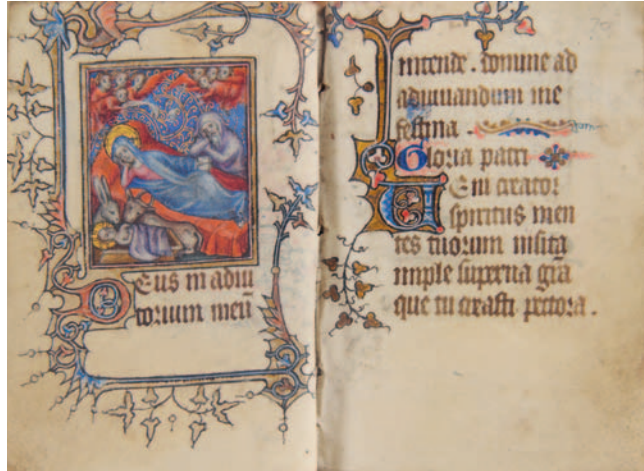 Deus in adiu
torium meū
70
intende. domine ad
adiuuandum me
festina.
Gloria patri
Ueni creator
spiritus men
tes tuorum uisita
imple superna gr̄a
que tu creasti pectora.